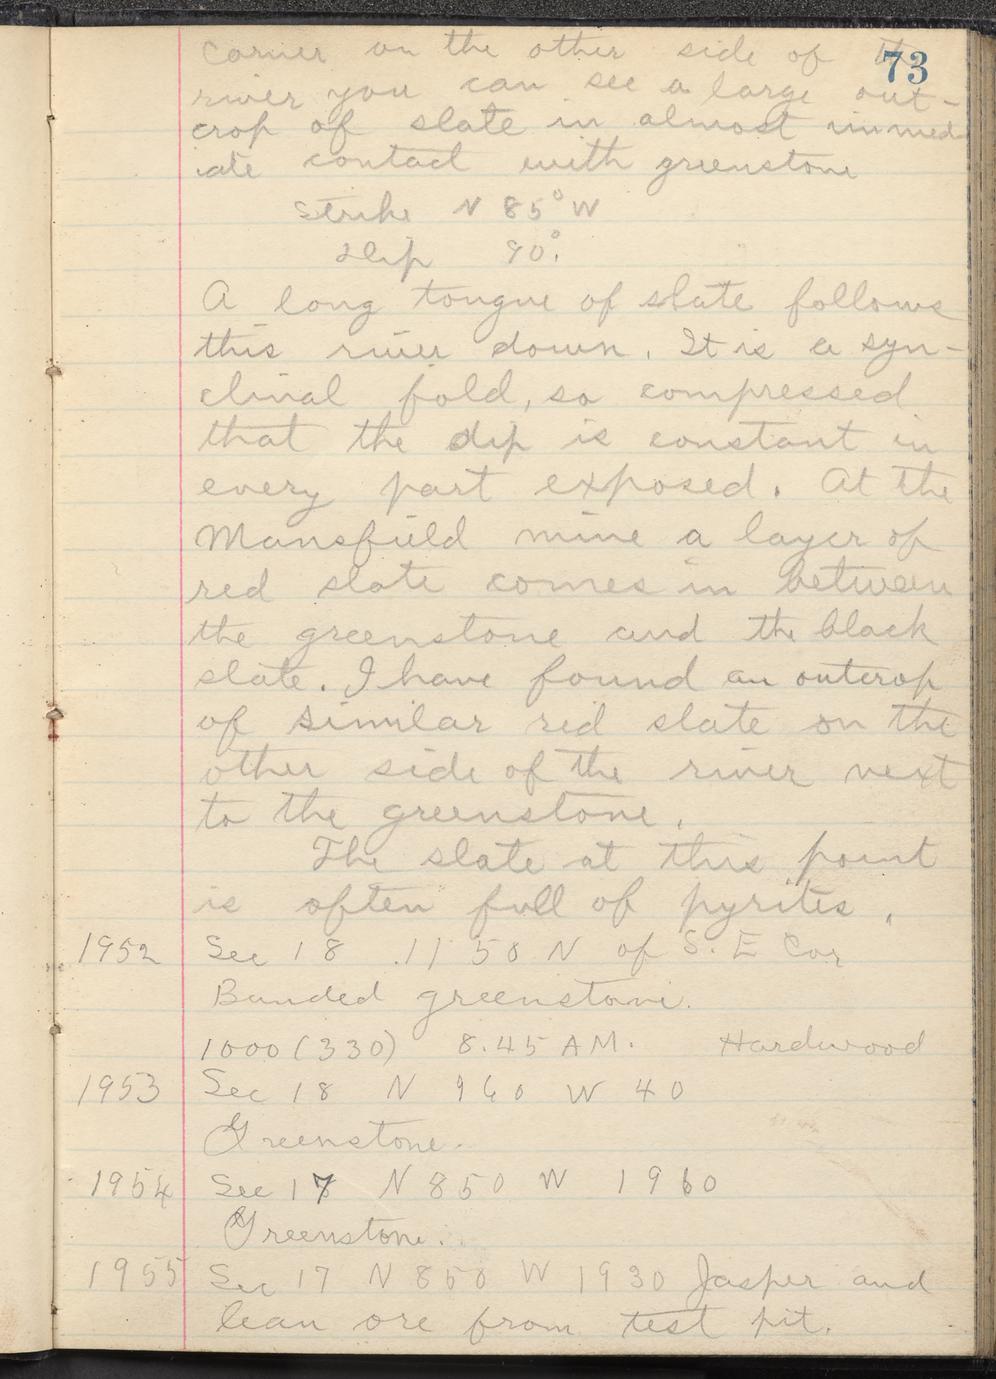 73
corner on the other side of the
river you can see a large out-
crop of slate in almost immed
iate contact with greenstone
Strike N 85° W
Dip 90°.
A long tongue of slate follows
this river down. It is a syn-
clinal fold, so compressed
that the dip is constant in
every part exposed. At the
Mansfield mine a layer of
red slate comes in between
the greenstone and the black
slate. I have found an outcrop
of similar red slate on the
other side of the river next
to the greenstone.
The slate at this point
is often full of pyrites.
1952 Sec 18 1150 N of S. E Cor
Banded greenstone.
1000 (330) 8.45 AM. Hardwood
1953 Sec 18 N 960 W 40
Greenstone.
1954 Sec 17 N 850 W 1960
Greenstone.
1955 Sec 17 N 850 W 1930 Jasper and
lean ore from test pit.